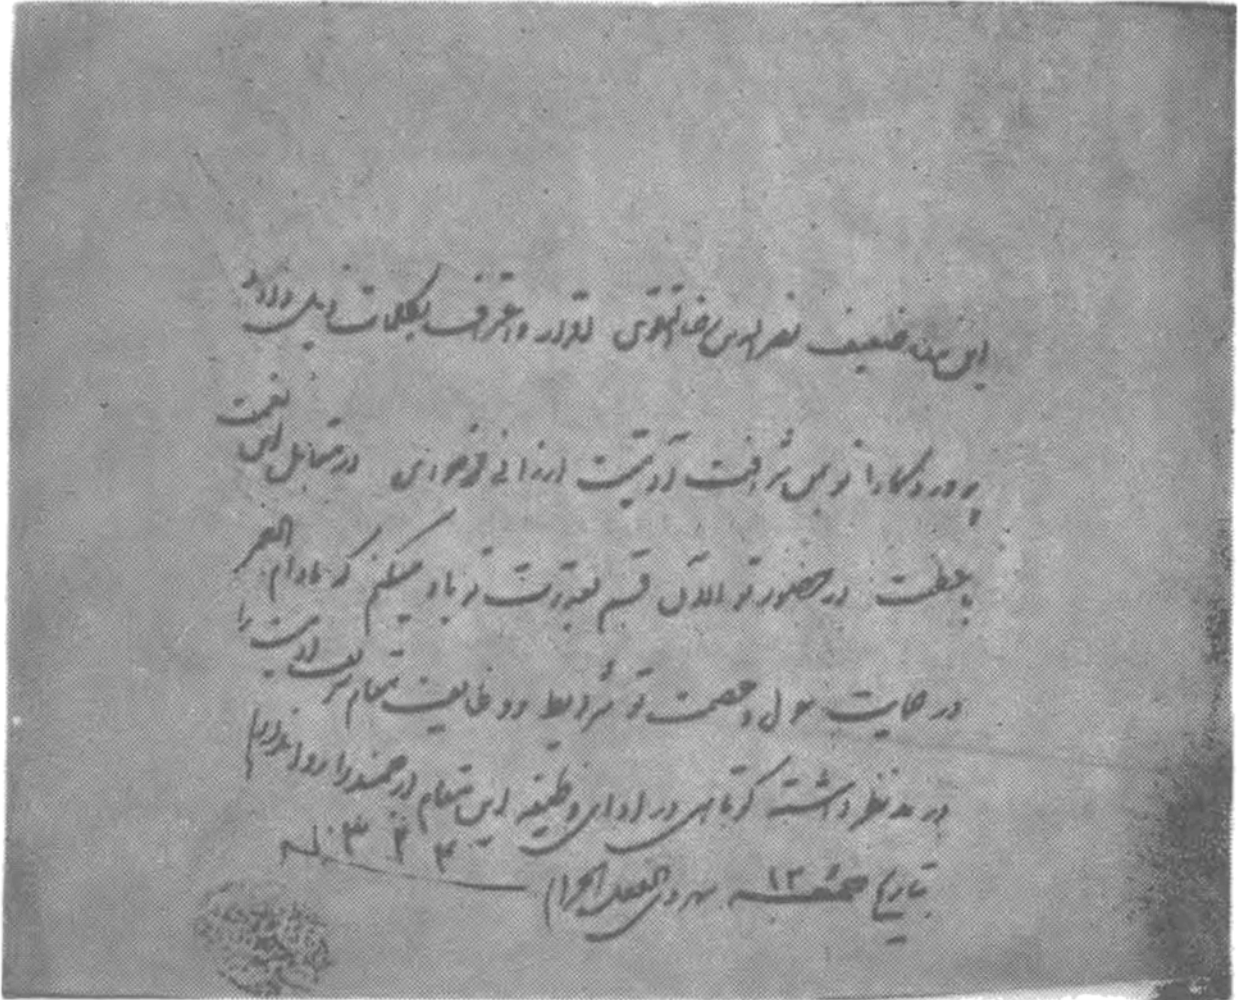 این بنده ضعیف نصرالله رضا تقوی اقرار و اعتراف بکلمات ذیل دارد
پروردگارا تو بمن شرافت آدمیت ارزانی فرمودی در مقابل این نعمت
با عظمت در حضور تو الآن قسم بقدرت تو یاد میکنم که مادام العمر
در حمایت حول و عصمت تو شرایط و وظایف مقام شریف آدمیت را
در مد نظر داشته کوتاهی در ادای وظیفه این مقام ارجمند را روا ندارم
بتاریخ جمعه ۱۲ شهر ذی القعده الحرام ۱۳۲۴